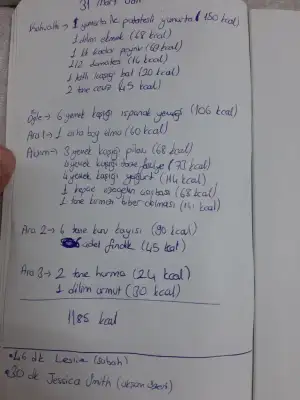 31 Mart Salı
Kahvaltı → 1 yumurta ile patatesli yumurta (150 kcal)
1 dilim ekmek (68 kcal)
1 kk kadar peynir (69 kcal)
1/2 domates (16 kcal)
1 tatlı kaşığı bal (20 kcal)
2 tane ceviz (45 kcal)
Öğle → 6 yemek kaşığı ıspanak yemeği (106 kcal)
Ara 1 → 1 orta boy elma (60 kcal)
Akşam → 3 yemek kaşığı pilav (68 kcal)
6 yemek kaşığı taze fasulye (73 kcal)
4 yemek kaşığı yoğurt (114 kcal)
1 kepçe çorbası (68 kcal)
1 tane biber dolması (141 kcal)
Ara 2 → 4 tane kuru kayısı (90 kcal)
6 adet fındık (45 kcal)
Ara 3 → 2 tane hurma (24 kcal)
1 dilim armut (30 kcal)
1185 kcal
• 46 dk Leslie (sabah)
• 30 dk Jessica Smith (akşam)